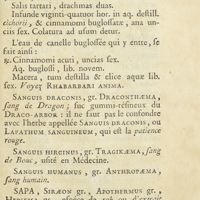 Salis tartari, drachmas duas.
Infunde viginti-quatuor hor. in aq. destill.
cichorii, & cinnamomi buglossatæ, ana un-
cias sex. Colatura ad usum detur.
L'eau de canelle buglossée qui y entre, se
fait ainsi :
℞. Cinnamomi acuti, uncias sex.
Aq. buglossi, lib. novem.
Macera, tum destilla & elice aquæ lib.
sex. Voyez RHABARBARI ANIMA.
SANGUIS DRACONIS, gr. DRACONTHÆMA,
sang de Dragon; suc gummi-résineux du
DRACO-ARBOR : il ne faut pas le confondre
avec l'herbe appellée SANGUIS DRACONIS, ou
LAPATHUM SANGUINEUM, qui est la patience
rouge.
SANGUIS HIRCINUS, gr. TRAGIKÆMA, sang
de Bouc, usité en Médecine.
SANGUIS HUMANUS, gr. ANTHROPÆMA,
sang humain.
SAPA, SIRÆON gr., APOTHERMUS gr.,